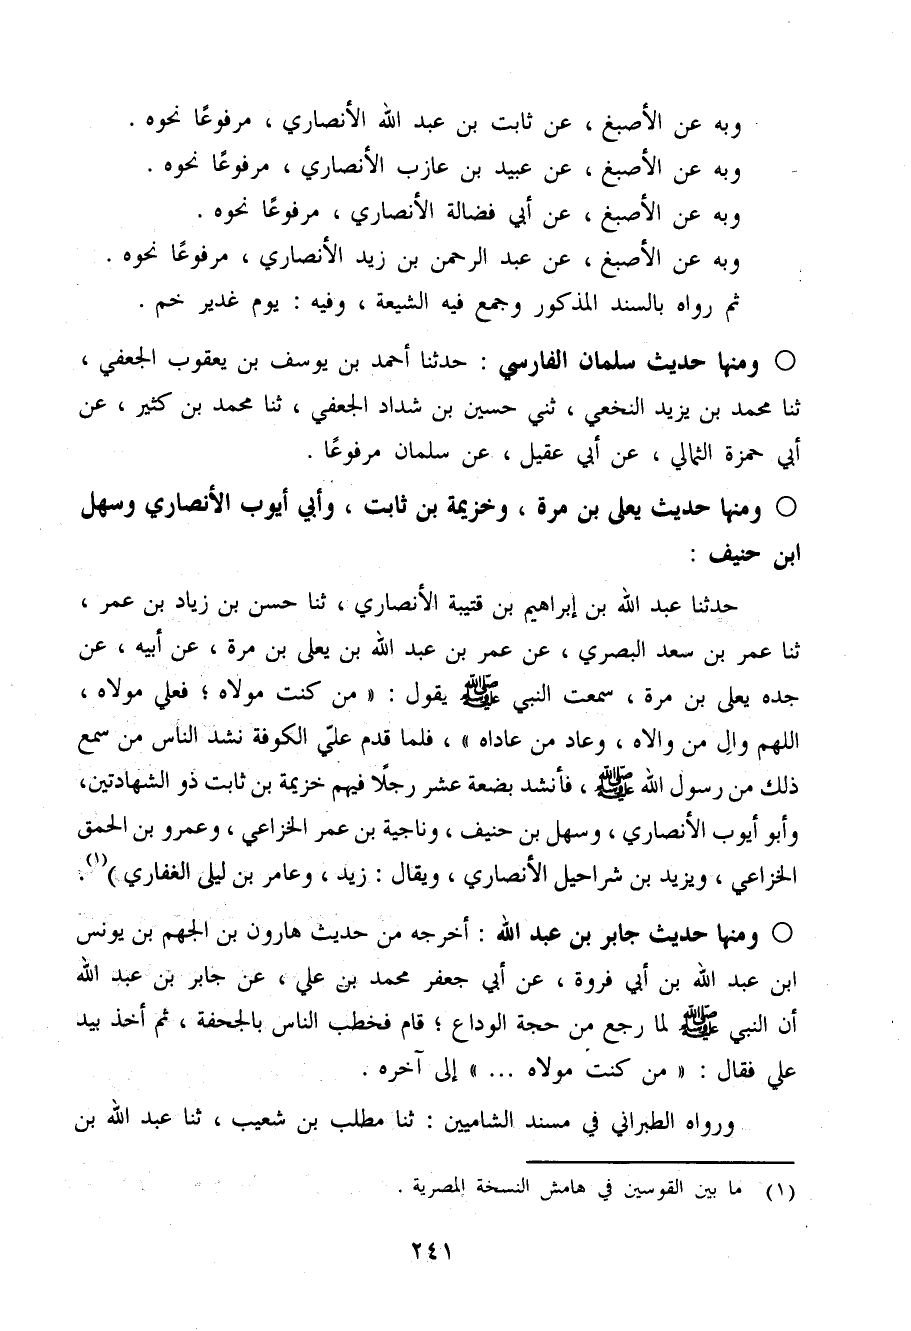 وبه عن الأصبغ ، عن ثابت بن عبد الله الأنصاري ، مرفوعًا نحوه .
وبه عن الأصبغ ، عن عبيد بن عازب الأنصاري ، مرفوعًا نحوه .
وبه عن الأصبغ ، عن أبي فضالة الأنصاري ، مرفوعًا نحوه .
وبه عن الأصبغ ، عن عبد الرحمن بن زيد الأنصاري ، مرفوعًا نحوه .
ثم رواه بالسند المذكور وجمع فيه الشيعة ، وفيه : يوم غدير خم .
○ ومنها حديث سلمان الفارسي : حدثنا أحمد بن يوسف بن يعقوب الجعفي ،
ثنا محمد بن يزيد النخعي ، ثني حسين بن شداد الجعفي ، ثنا محمد بن كثير ، عن
أبي حمزة الثمالي ، عن أبي عقيل ، عن سلمان مرفوعًا .
○ ومنها حديث يعلى بن مرة ، وخزيمة بن ثابت ، وأبي أيوب الأنصاري وسهل
ابن حنيف :
حدثنا عبد الله بن إبراهيم بن قتيبة الأنصاري ، ثنا حسن بن زياد بن عمر ،
ثنا عمر بن سعد البصري ، عن عمر بن عبد الله بن يعلى بن مرة ، عن أبيه ، عن
جده يعلى بن مرة ، سمعت النبي ﷺ يقول : « من كنت مولاه ؛ فعلي مولاه ،
اللهم والِ من والاه ، وعاد من عاداه » ، فلما قدم عليّ الكوفة نشد الناس من سمع
ذلك من رسول الله ﷺ ، فأنشد بضعة عشر رجلًا فيهم خزيمة بن ثابت ذو الشهادتين،
وأبو أيوب الأنصاري ، وسهل بن حنيف ، وناجية بن عمر الخزاعي ، وعمرو بن الحمق
الخزاعي ، ويزيد بن شراحيل الأنصاري ، ويقال : زيد ، وعامر بن ليلى الغفاري )(١).
○ ومنها حديث جابر بن عبد الله : أخرجه من حديث هارون بن الجهم بن يونس
ابن عبد الله بن أبي فروة ، عن أبي جعفر محمد بن علي ، عن جابر بن عبد الله
أن النبي ﷺ لما رجع من حجة الوداع ؛ قام فخطب الناس بالجحفة ، ثم أخذ بيد
علي فقال : « من كنت مولاه ... » إلى آخره .
ورواه الطبراني في مسند الشاميين : ثنا مطلب بن شعيب ، ثنا عبد الله بن
(١) ما بين القوسين في هامش النسخة المصرية .
٢٤١